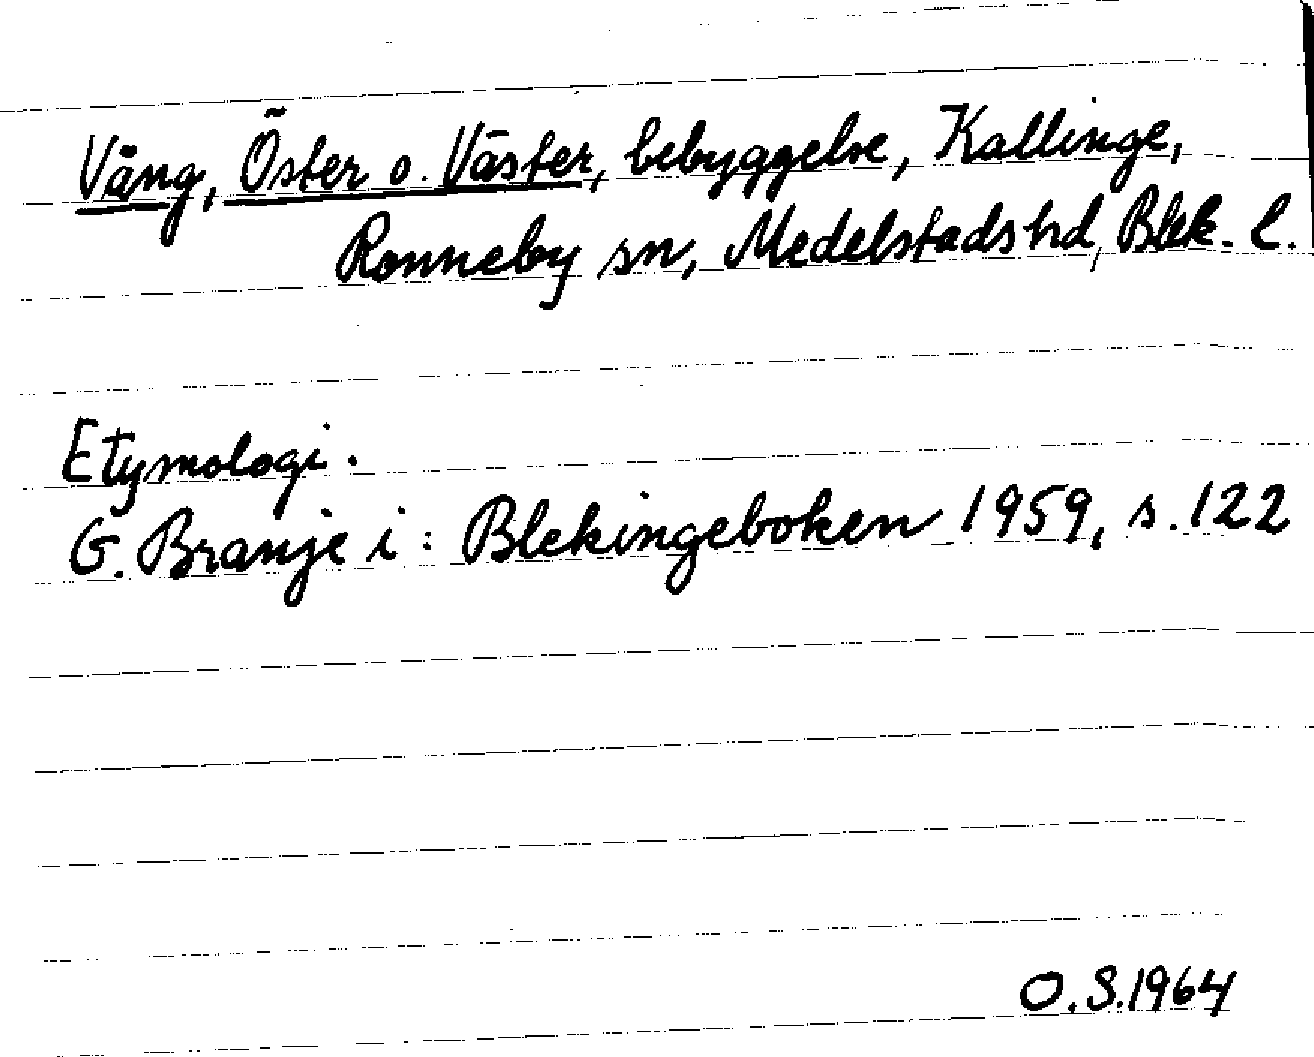 Väng, Öster o. Väster, bebyggelse, Kallinge,
Ronneby sn, Medelstads hd, Blek. l.
Etymologi.
G. Branje i: Blekingeboken 1959, s. 122
O.S. 1964